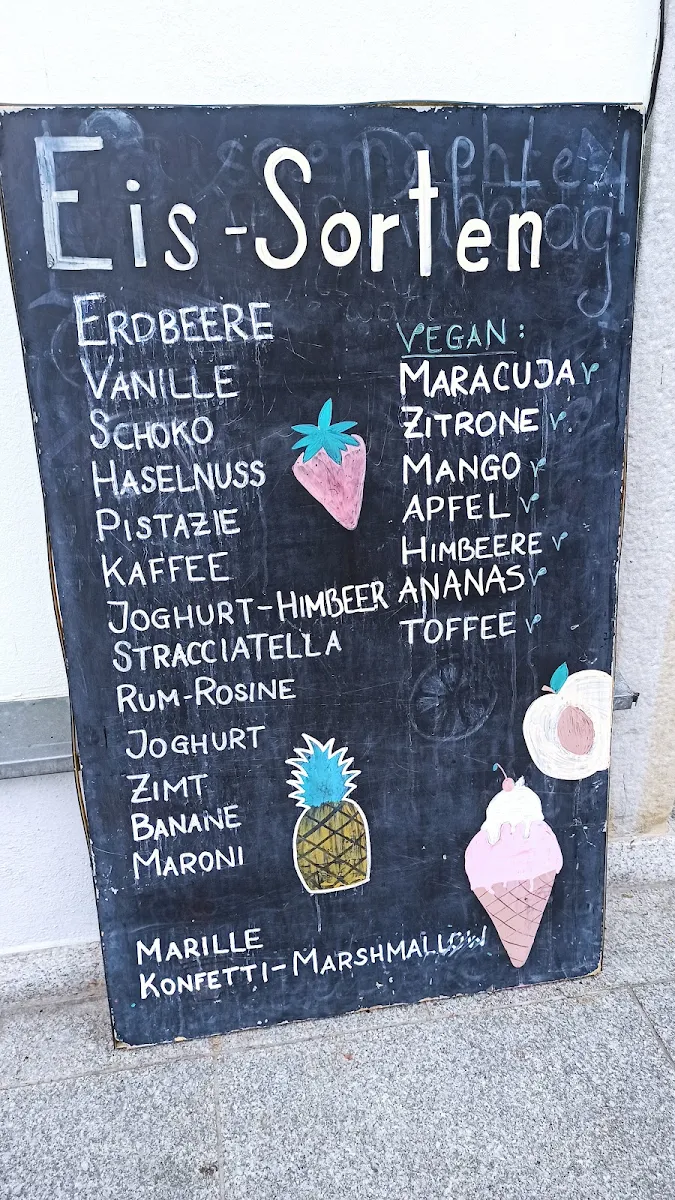 Eis-Sorten
ERDBEERE
VANILLE
SCHOKO
HASELNUSS
PISTAZIE
KAFFEE
JOGHURT-HIMBEER
STRACCIATELLA
RUM-ROSINE
JOGHURT
ZIMT
BANANE
MARONI
MARILLE
KONFETTI-MARSHMALLOW
VEGAN:
MARACUJA v
ZITRONE v.
MANGO v
APFEL v
HIMBEERE v
ANANAS v
TOFFEE v